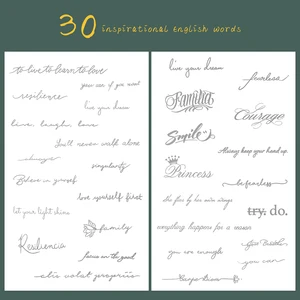 30 inspirational english words
to live to learn to love
you can if you want
resilience
live your dream
live, laugh, love
You'll never walk alone
always
singularity
Believe in yourself
love yourself first
let your light shine
family
Resiliencia
focus on the good
alis volat propriis
live your dream
fearless
Familia
Courage
Smile
Always keep your head up.
Princess
be fearless
she flies by her own wings
try. do.
everything happens for a reason
you are enough
you can
Carpe Diem